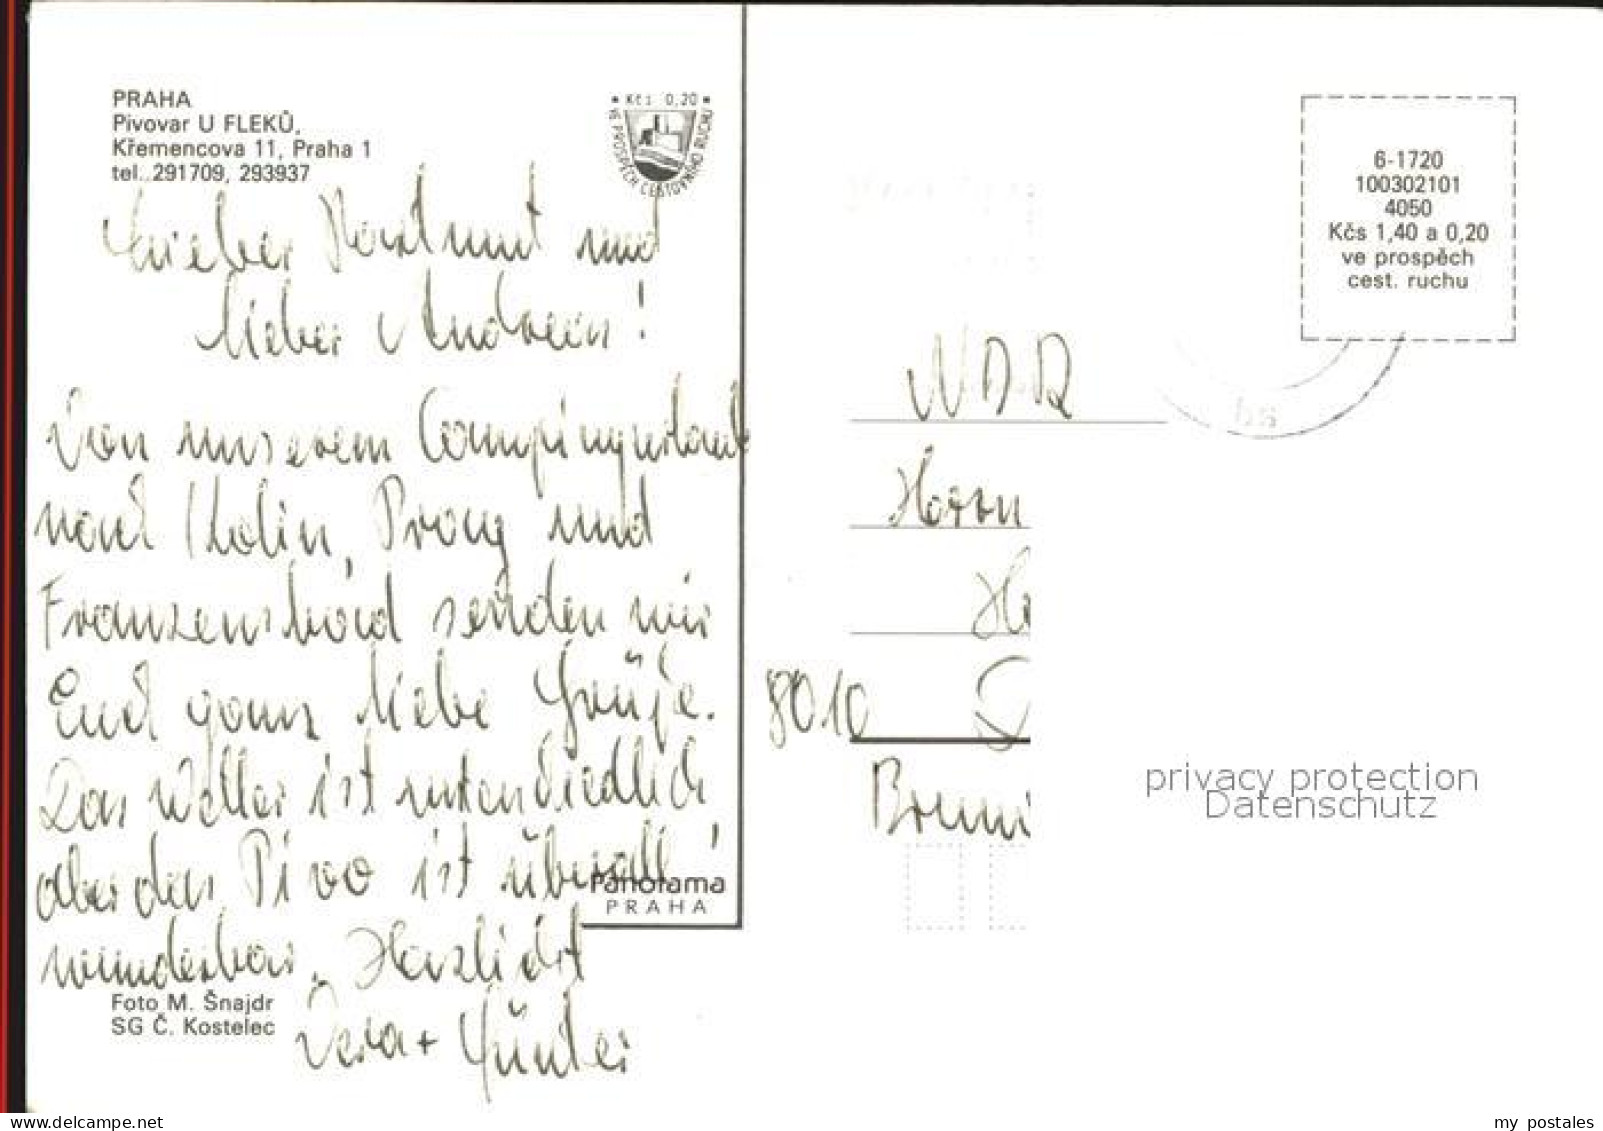 PRAHA
Pivovar U FLEKŮ,
Křemencova 11, Praha 1
tel. 291709, 293937
* Kčs 0,20 *
VE PROSPĚCH CESTOVNÍHO RUCHU
6-1720
100302101
4050
Kčs 1,40 a 0,20
ve prospěch
cest. ruchu
Lieber und
lieber Andreas!
Von unserem Campingurlaub
nach Kolin, Prag und
Franzensbad senden wir
Euch ganz liebe Grüße.
Das Wetter ist unterschiedlich
aber das Pivo ist überall
wunderbar. Herzlichst
Vera + Günter
DDR
8010
Panorama
PRAHA
Foto M. Šnajdr
SG Č. Kostelec
privacy protection
Datenschutz
delcampe.net
my postales